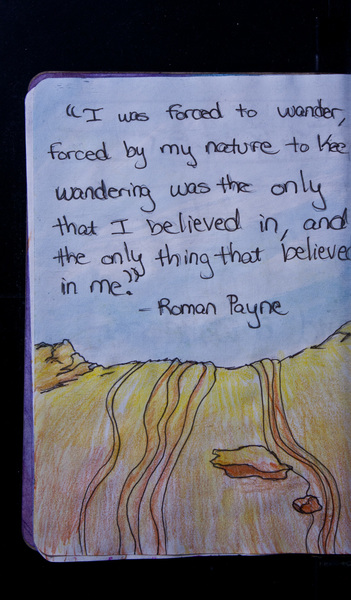 “I was forced to wander,
forced by my nature to kee
wandering was the only
that I believed in, and
the only thing that believed
in me.”
- Roman Payne